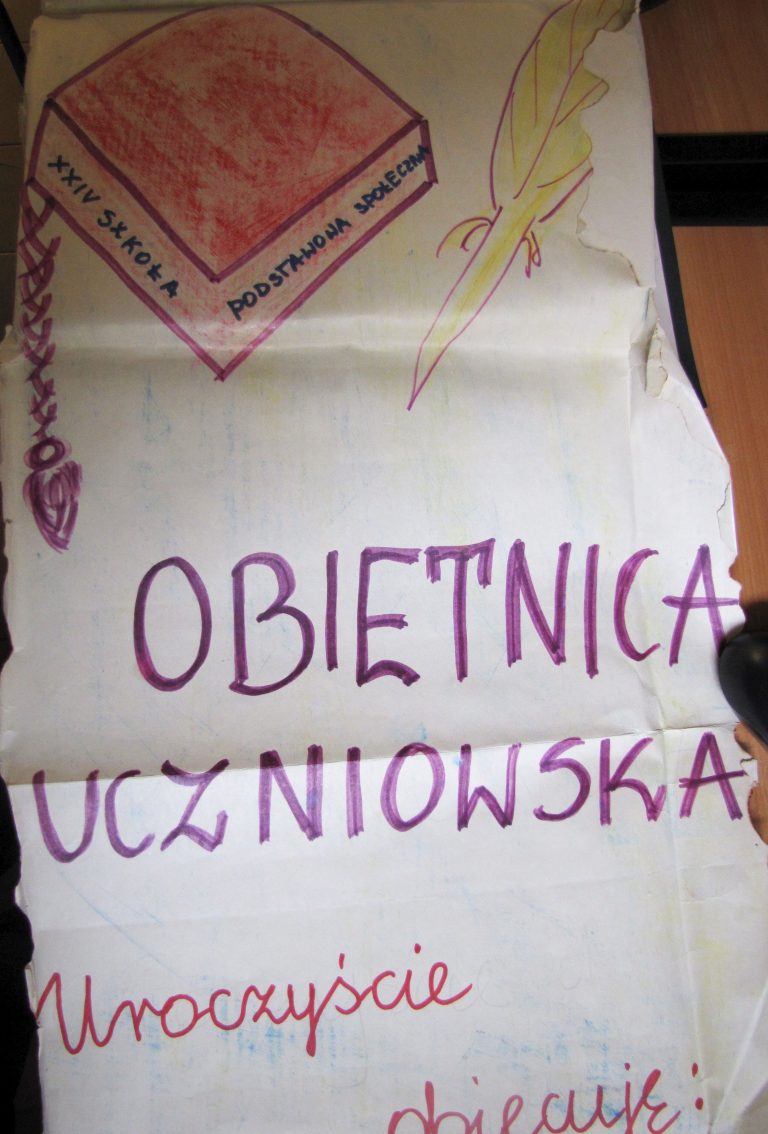 XXIV SZKOŁA
PODSTAWOWA SPOŁECZNA
OBIETNICA
UCZNIOWSKA
Uroczyście
obiecuję: